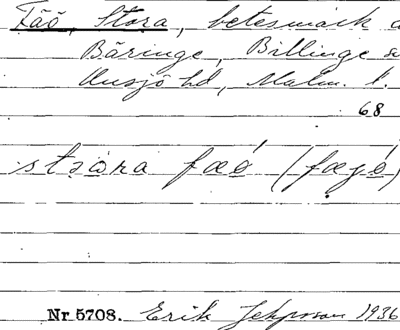 Fäö, Stora, betesmark
Bäringe, Billinge s
Onsjö hd, Malm. l.
68
stɔra fæó (fæjó)
Nr 5708. Erik Jeppsson 1936